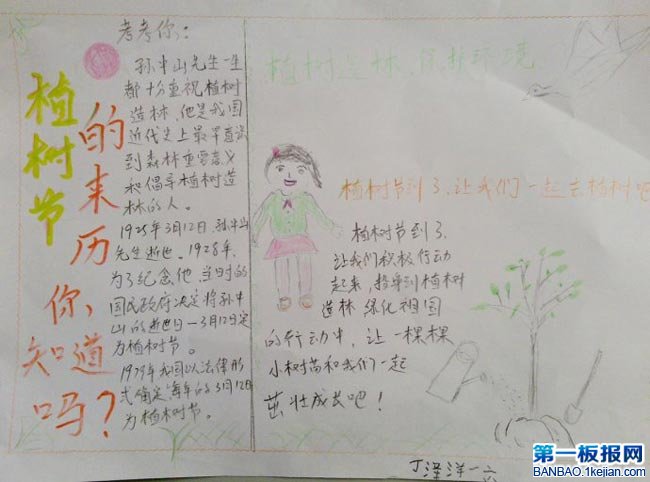 植树节
的来历
你知道
吗？
考考你：
孙中山先生一生
都十分重视植树
造林，他是我国
近代史上最早意识
到森林重要意义
和倡导植树造
林的人。
1925年3月12日，孙中山
先生逝世。1928年，
为了纪念他，当时的
国民政府决定将孙中
山的逝世日—3月12日定
为植树节。
1979年我国以法律形
式确定每年的3月12日
为植树节。
植树造林、保护环境
植树节到了，让我们一起去植树吧
植树节到了，
让我们积极行动
起来，投身到植树
造林 绿化祖国
的行动中，让一棵棵
小树苗和我们一起
茁壮成长吧！
丁泽洋 一六
第一板报网
BANBAO.1kejian.com